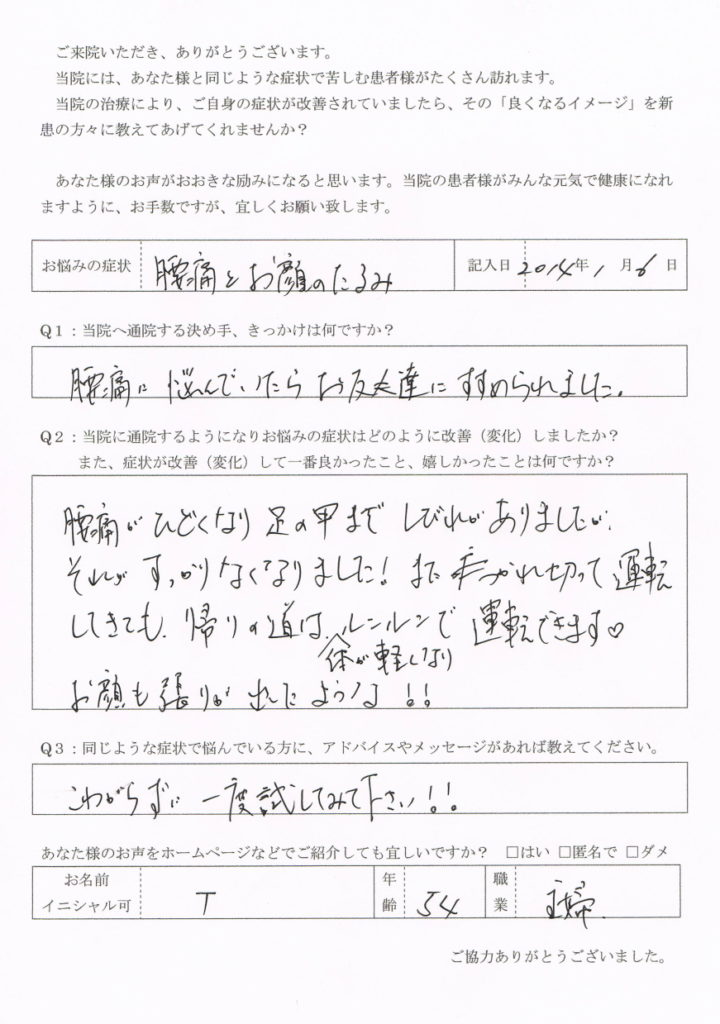 ご来院いただき、ありがとうございます。
当院には、あなた様と同じような症状で苦しむ患者様がたくさん訪れます。
当院の治療により、ご自身の症状が改善されていましたら、その「良くなるイメージ」を新
患の方々に教えてあげてくれませんか？
あなた様のお声がおおきな励みになると思います。当院の患者様がみんな元気で健康になれ
ますように、お手数ですが、宜しくお願い致します。
お悩みの症状 腰痛とお顔のたるみ 記入日 2014年 1月 6日
Q1：当院へ通院する決め手、きっかけは何ですか？
腰痛に悩んでいたらお友達にすすめられました。
Q2：当院に通院するようになりお悩みの症状はどのように改善（変化）しましたか？
また、症状が改善（変化）して一番良かったこと、嬉しかったことは何ですか？
腰痛がひどくなり足の甲までしびれがありましたが、
それがすっかりなくなりました！また疲れ切って運転
してきても、帰りの道は、ルンルンで運転できます♡
体が軽くなり
お顔も張りが出たような！！
Q3：同じような症状で悩んでいる方に、アドバイスやメッセージがあれば教えてください。
こわがらずに一度試してみて下さい！！
あなた様のお声をホームページなどでご紹介しても宜しいですか？ □はい □匿名で □ダメ
お名前 イニシャル可 T 年齢 54 職業 主婦
ご協力ありがとうございました。